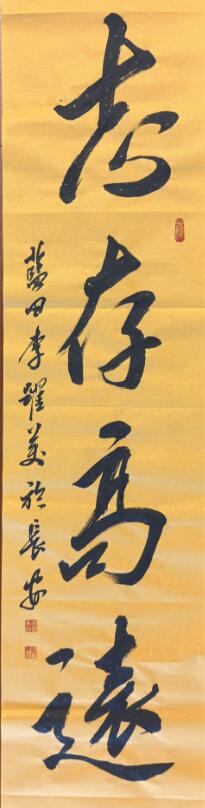 志存高遠
藍田李躍美於長安